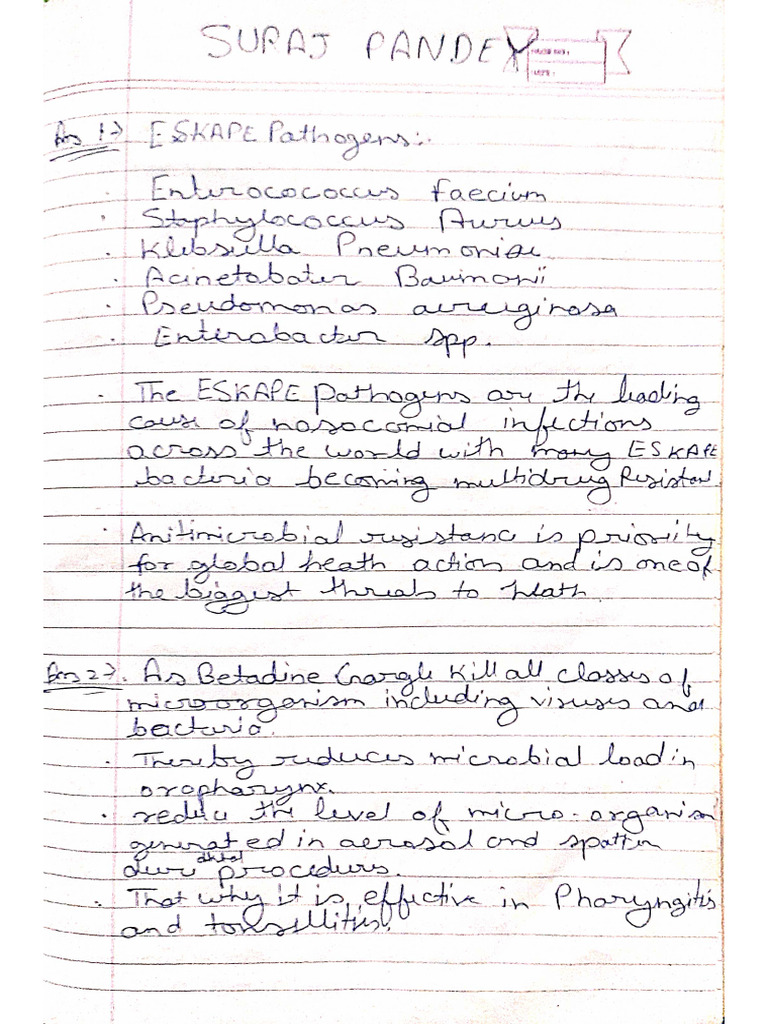 SURAJ PANDEY
Ans 1→ ESKAPE Pathogens:-
· Enterocococcus faecium
· Staphylococcus Aureus
· Klebsella Pneumoniae
· Acinetobater Baumonii
· Pseudomonas aeruginosa
· Enterabacter spp.
· The ESKAPE pathogens are the leading
cause of nosocomial infections
across the world with many ESKAPE
bacteria becoming multidrug Resistant
· Anitimicrobial resistance is priority
for global heath action and is one of
the biggest threats to heath.
Ans 2→ · As Betadine Gargle kill all classes of
microorganism including viruses and
bacteria.
· Thereby reduces microbial load in
oropharynx.
· reduce the level of micro-organism
generated in aerosol and spatter
dental
procedures.
· That why it is effective in Pharyngitis
and tonsellitis.